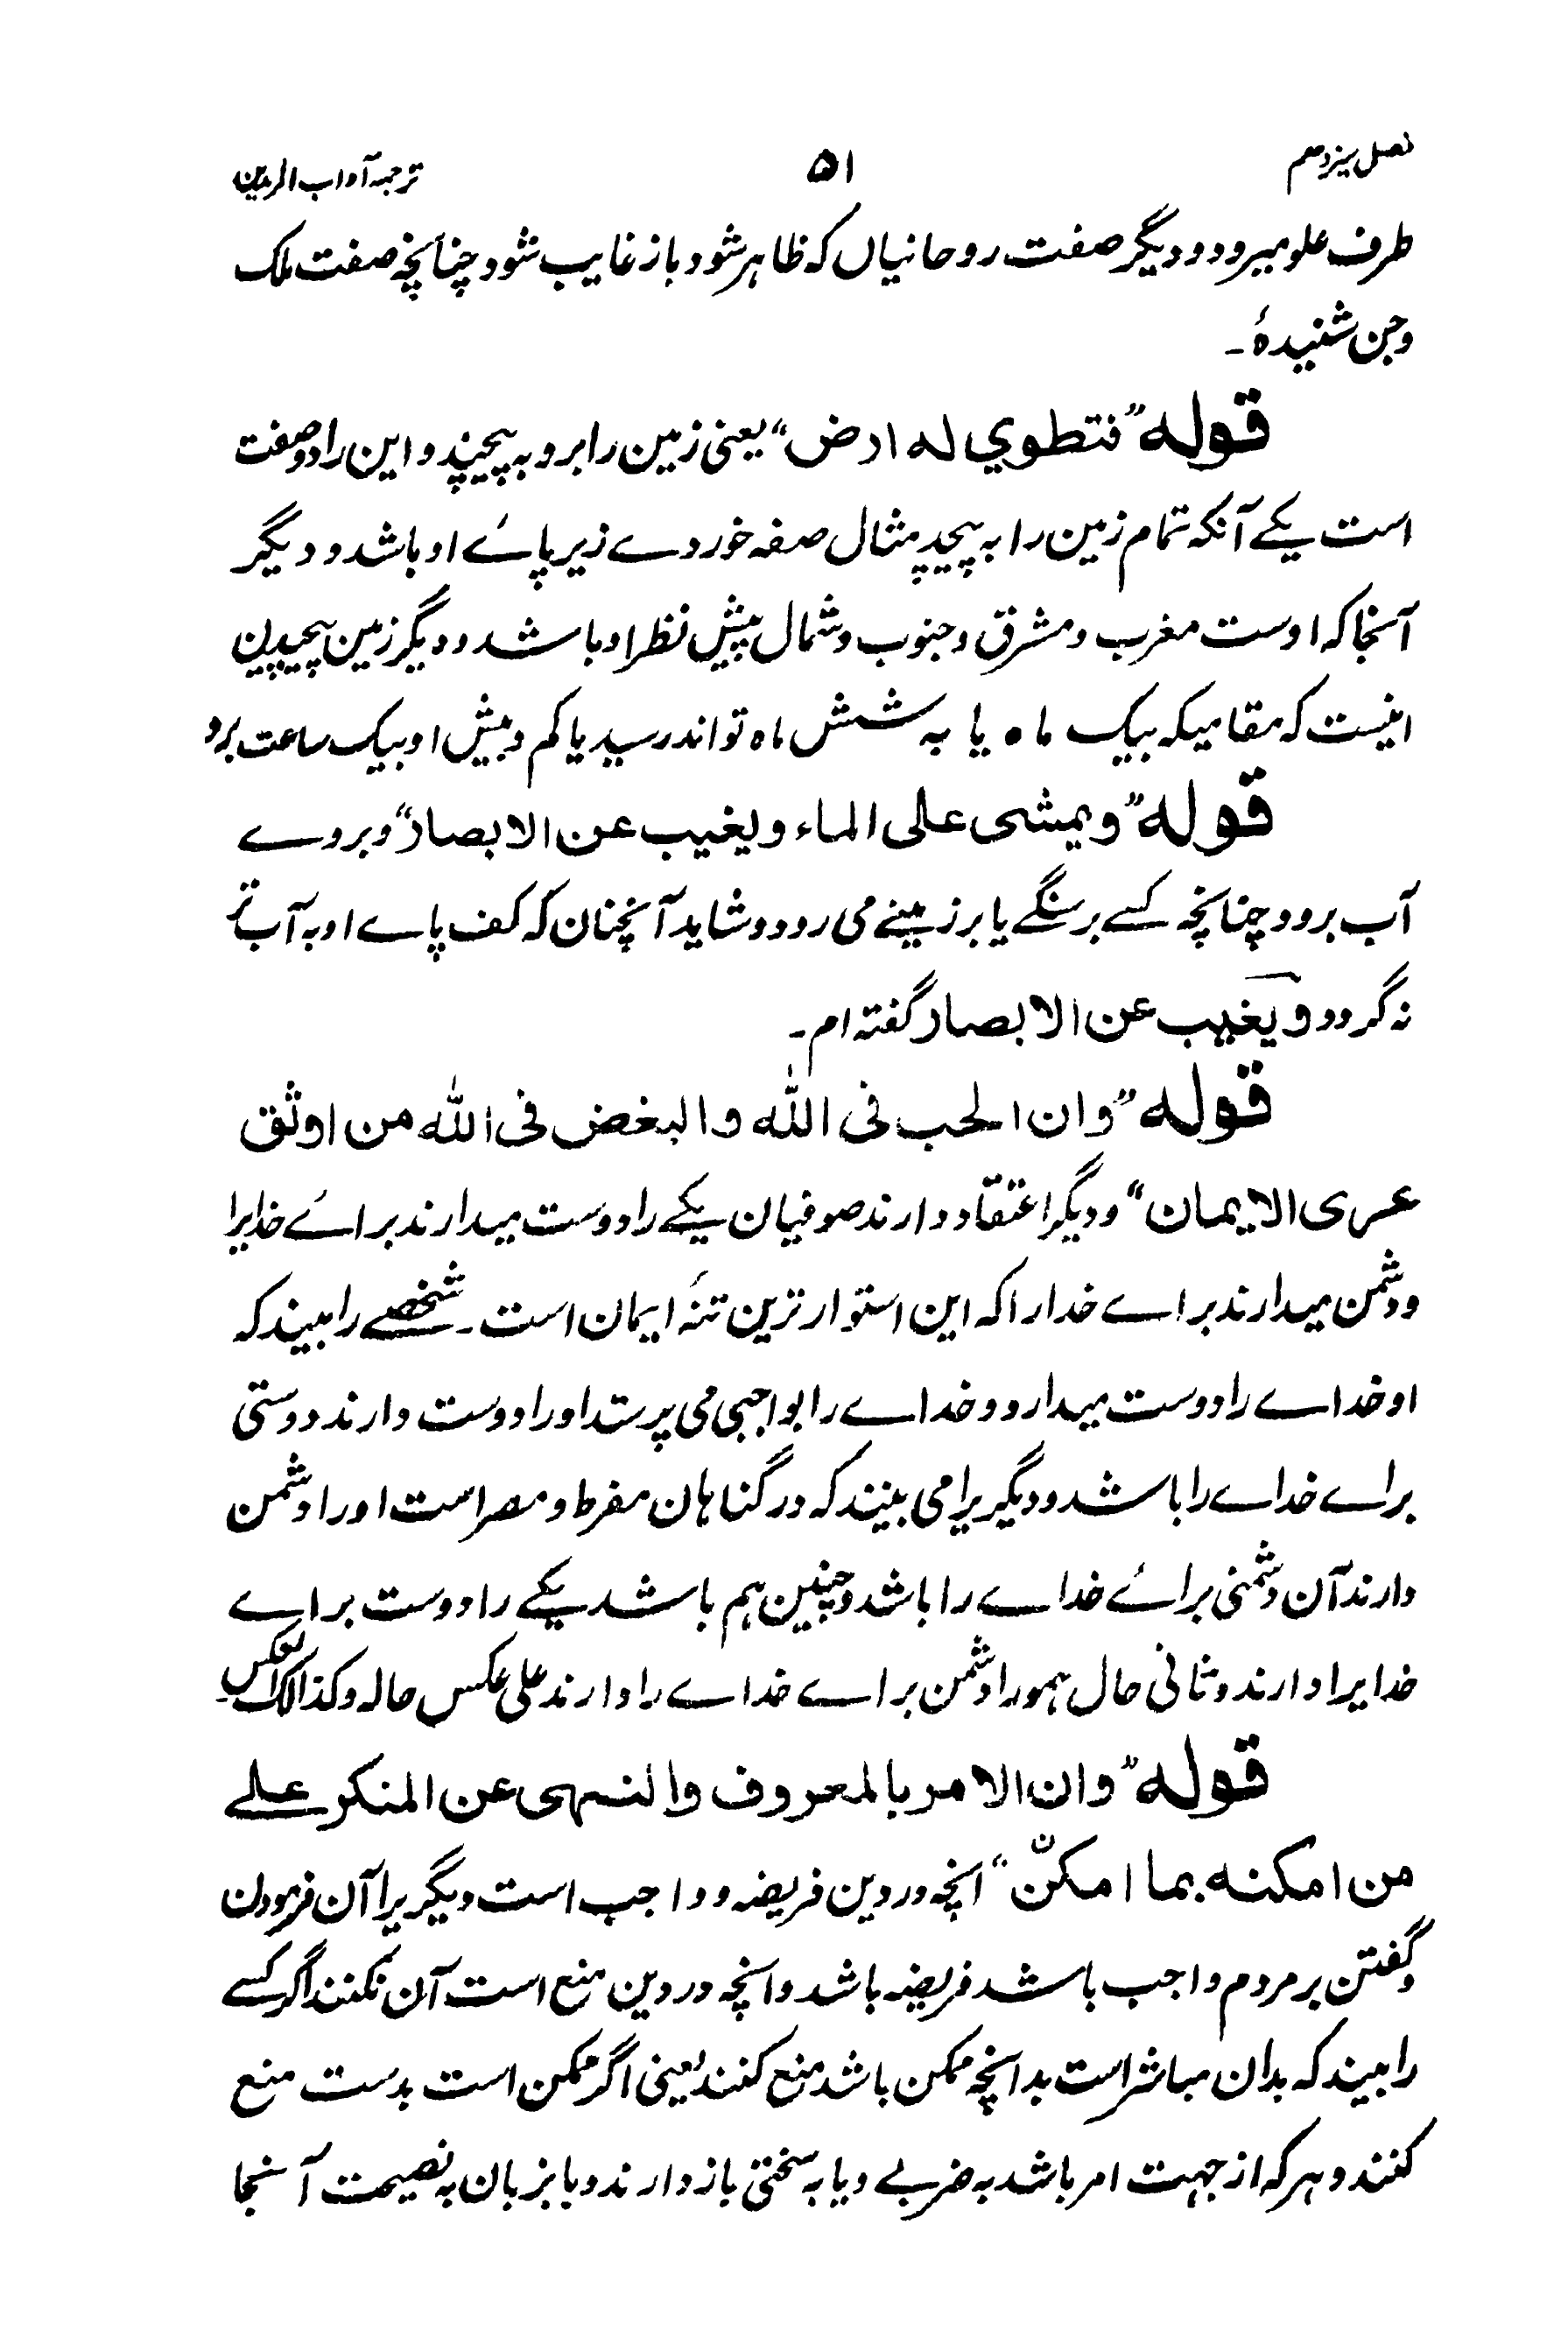 فصل سیزدهم ۵۱ ترجمہ آداب المریدین
طرف علو میرود و دیگر صفت روحانیاں کہ ظاہر شود باز غایب شود چنانچہ صفت ملک
وجن شنیدۂ ۔
قوله "فتطوي له ارض" یعنی زمین را برو بہ پیچیند و این را دو صفت
است یکے آنکہ تمام زمین را بہ پیچید مثال صفہ خوردے زیر پائے او باشد و دیگر
آنجا کہ اوست مغرب و مشرق و جنوب و شمال پیش نظر او باشد و دیگر زمین پیچیدین
اینست کہ مقامیکہ بیک ماه یا بہ شش ماه تو اند رسید یا کم و بیش او بیک ساعت برد
قوله "ویمشی علی الماء ویغیب عن الابصار" و بروے
آب برود چنانچہ کسے بر سنگے یا بر زمینے می رود و شاید آنچنان کہ کف پاے او بہ آب تر
نہ گردد ویغیب عن الابصار گفتہ ام ۔
قوله "وان الحب فی الله والبغض فی الله من اوثق
عری الایمان" و دیگر اعتقاد دارند صوفیان یکے را دوست میدارند برائے خدایرا
و دشمن میدارند براے خدا را کہ این استوار ترین تنۂ ایمان است ۔ شخصے را بیند کہ
او خداے را دوست میدارد و خداے را بواجبی می پرستد او را دوست دارند دوستی
براے خداے را باشد و دیگریرا می بینند کہ در گناہان مفرط و مصر است او را دشمن
دارند آن دشمنی برائے خداے را باشد و چنین ہم باشد یکے را دوست براے
خدایرا دارند و ثانی حال ہمورا دشمن براے خداے را دارند علی عکس حالہ و کذالک العکس ۔
قوله "وان الامر بالمعروف والنهی عن المنکر علے
من امکنه بما امکن" آنچہ در دین فریضہ و واجب است دیگریرا آن فرمودن
و گفتن بر مردم واجب باشد فریضہ باشد و آنچہ در دین منع است آن نکنند اگر کسے
را بیند کہ بدان مباشر است بدانچہ ممکن باشد منع کنند یعنی اگر ممکن است بدست منع
کنند و ہر کہ از جہت امر باشد بہ ضربے و یا بہ سختی باز دارند و یا بزبان بہ نصیحت آنجا